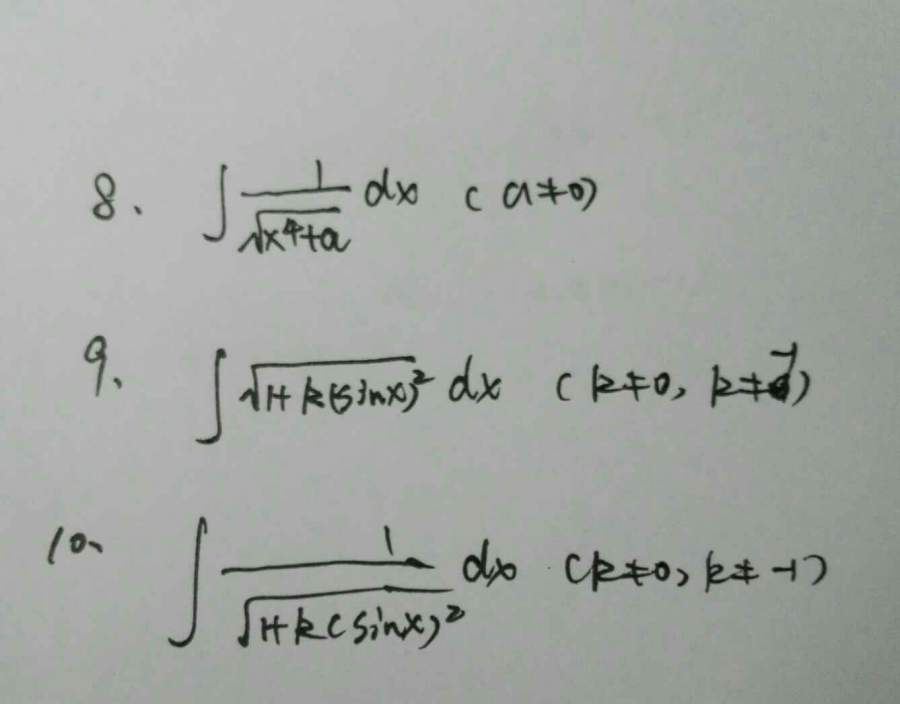 8. ∫ 1/√(x⁴+a) dx (a≠0)
9. ∫ √(1+k(sinx)²) dx (k≠0, k≠-1)
10. ∫ 1/√(1+k(sinx)²) dx (k≠0, k≠-1)